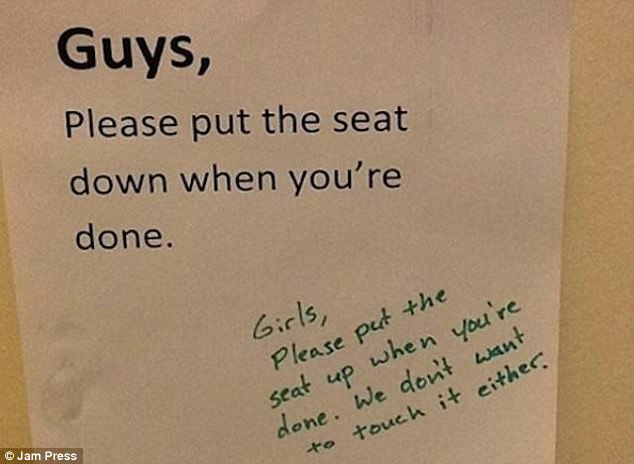 Guys,
Please put the seat
down when you're
done.
Girls,
Please put the
seat up when you're
done. We don't want
to touch it either.
© Jam Press